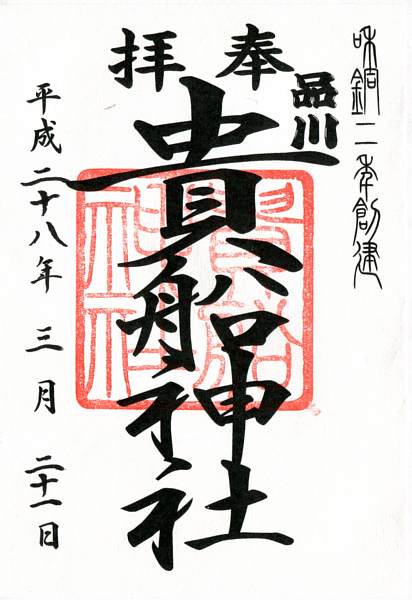 和銅二年創建
奉拝
品川
貴船神社
平成二十八年三月二十一日